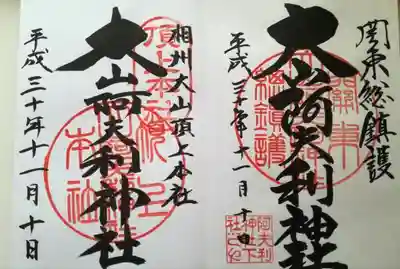 関東総鎮護
大山阿夫利神社
平成三十年十一月十日
阿夫利
神社下
社之印
相州大山頂上本社
大山阿夫利神社
平成三十年十一月十日
頂上本社
本社